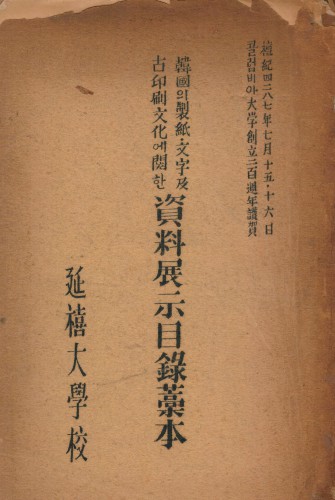 檀紀四二八七年七月十五·十六日
콜럼비아大學創立二百週年讃賀
韓國의製紙·文字及
古印刷文化에関한
資料展示目錄藁本
延禧大學校